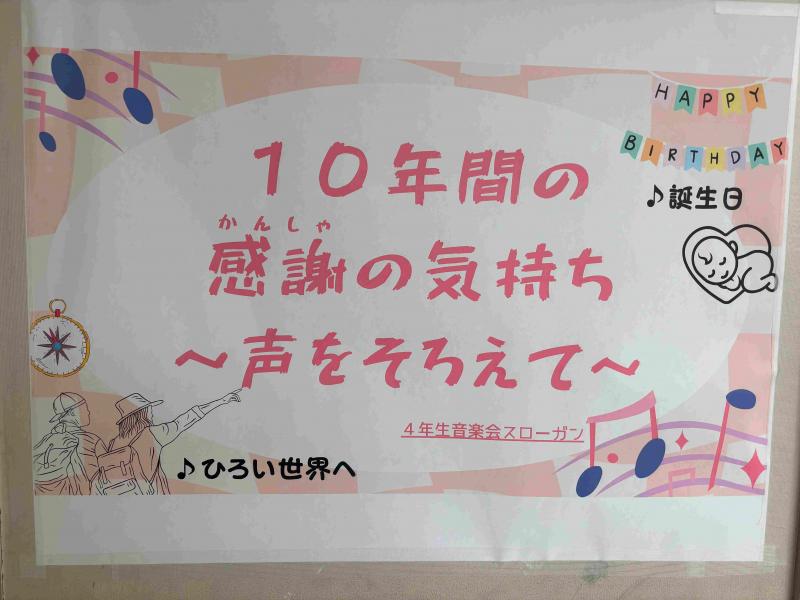 HAPPY
BIRTHDAY
♪誕生日
１０年間の
かんしゃ
感謝の気持ち
～声をそろえて～
４年生音楽会スローガン
♪ひろい世界へ